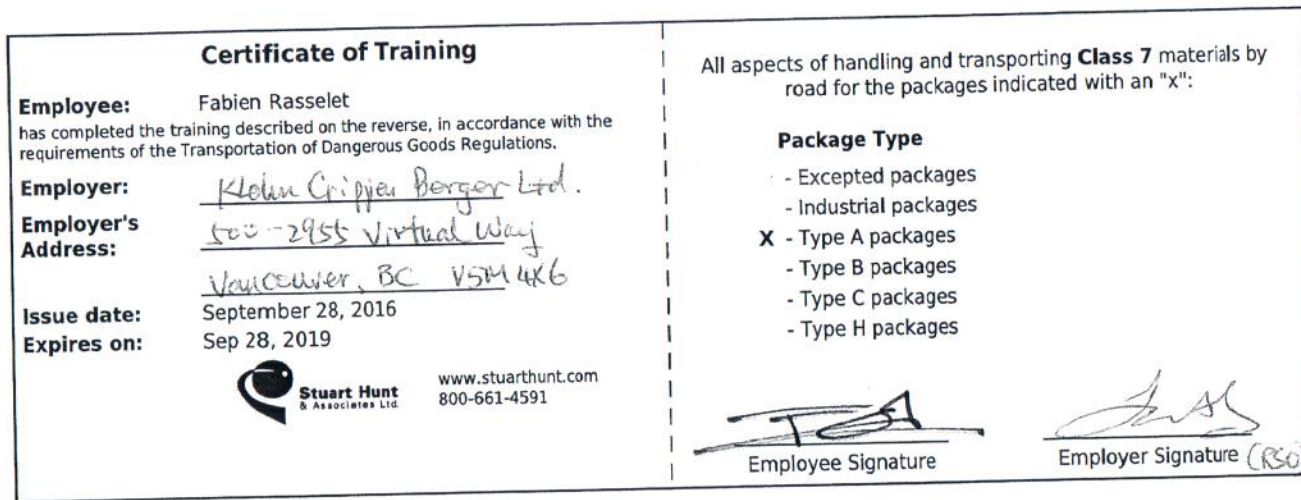 Certificate of Training
Employee: Fabien Rasselet
has completed the training described on the reverse, in accordance with the
requirements of the Transportation of Dangerous Goods Regulations.
Employer: Klohn Crippen Berger Ltd.
Employer's
Address: 500-2955 Virtual Way
Vancouver, BC V5M 4X6
Issue date: September 28, 2016
Expires on: Sep 28, 2019
Stuart Hunt
& Associates Ltd.
www.stuarthunt.com
800-661-4591
All aspects of handling and transporting Class 7 materials by
road for the packages indicated with an "x":
Package Type
- Excepted packages
- Industrial packages
X - Type A packages
- Type B packages
- Type C packages
- Type H packages
Employee Signature
Employer Signature (RSO)